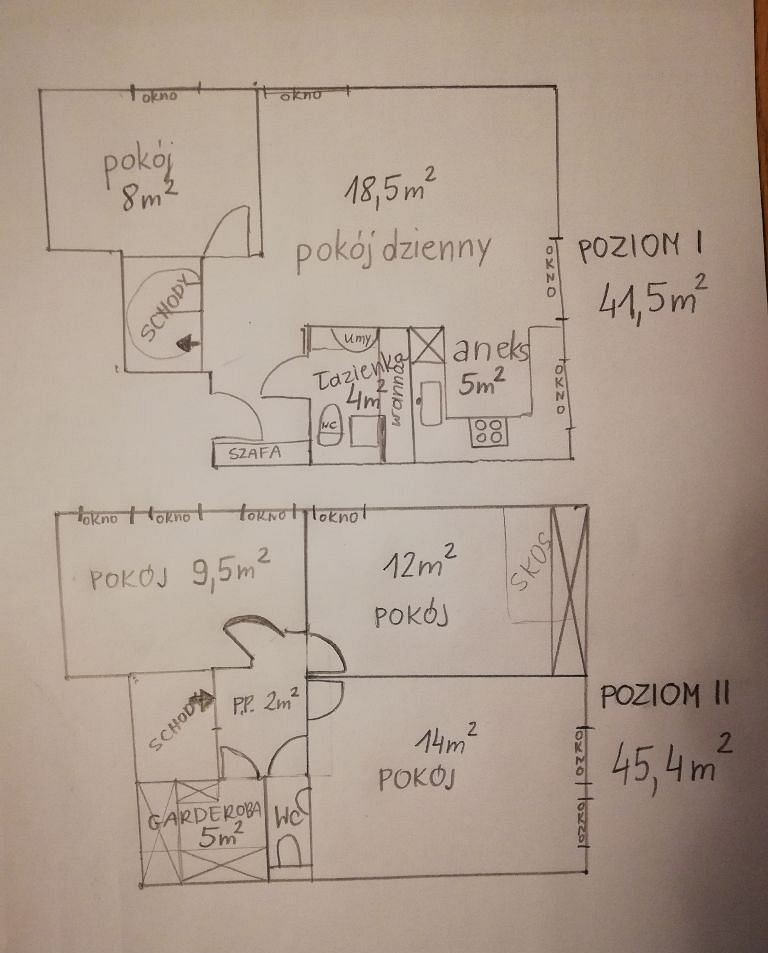 okno
okno
pokój
8m²
18,5m²
pokój dzienny
OKNO
POZIOM I
41,5m²
SCHODY
umy
łazienka
4m²
wanna
WC
aneks
5m²
OKNO
SZAFA
okno
okno
OKNO
OKNO
POKÓJ 9,5m²
12m²
POKÓJ
SKOS
SCHODY
P.P. 2m²
POZIOM II
45,4m²
14m²
POKÓJ
OKNO
OKNO
GARDEROBA
5m²
WC